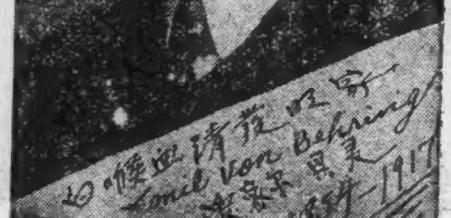 白喉血清發明家
Emil von Behring
貝灵
1854-1917